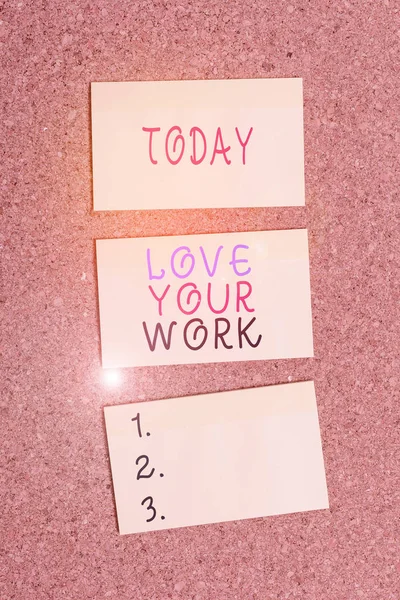 TODAY
LOVE
YOUR
WORK
1.
2.
3.